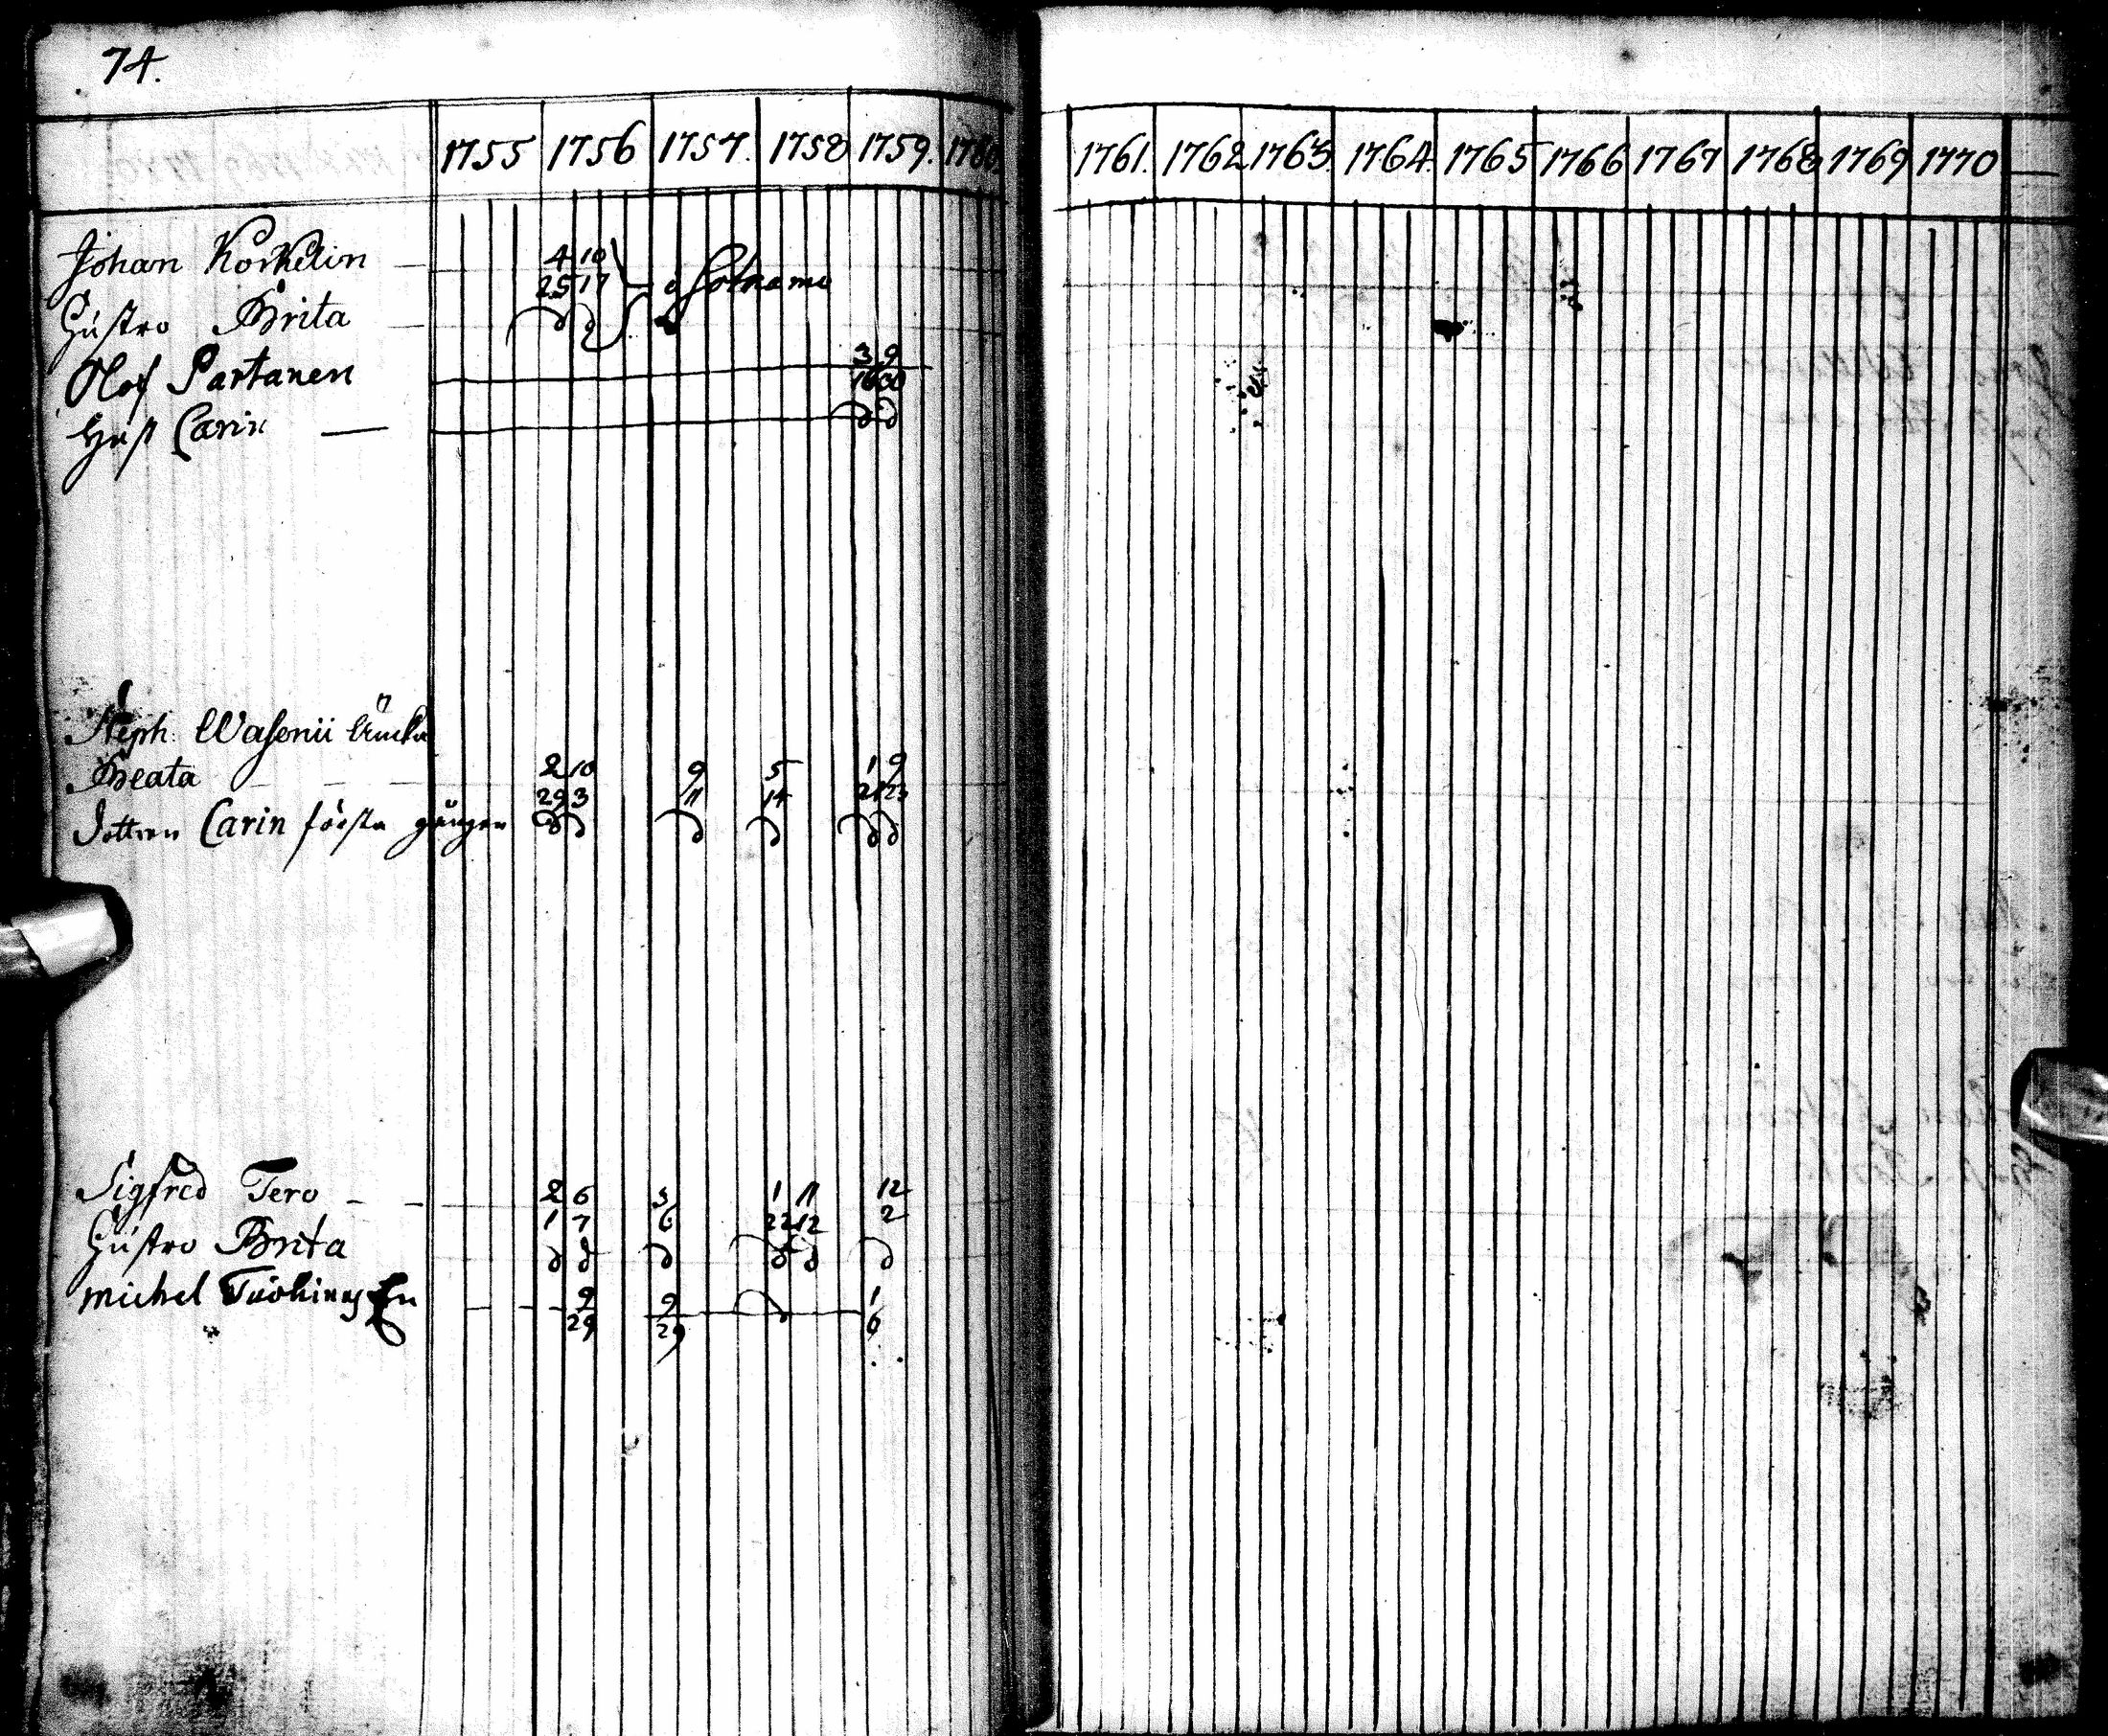 74.
1755 1756 1757. 1758 1759. 1760. 1761. 1762 1763. 1764. 1765 1766 1767 1768 1769 1770
Johan Korkelin 4 10
25 17 i Sotkamo
Hustro Brita
Olof Partanen 3 9
16 00
Hust Carin
Steph: Wasenii Äncka
Beata 2 10 9 5 1 9
29 3 11 14 21 23
Dottren Carin första gången
Sigfred Tero 2 6 3 1 11 12
1 7 6 22 12 2
Hustro Brita
Michel 9 9 1
29 29 6